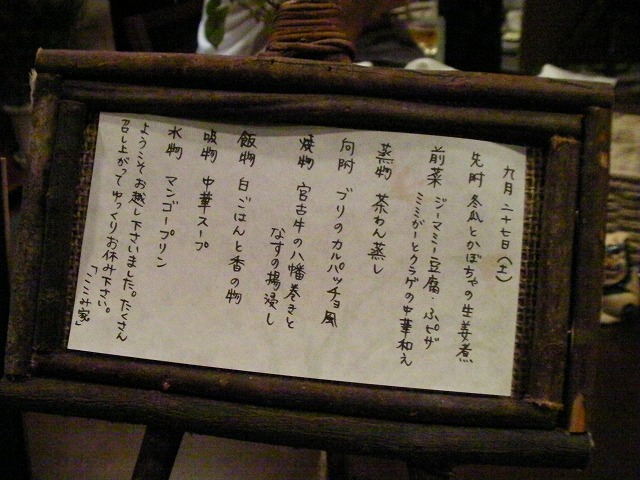 九月二十七日(土)
先附 冬瓜とかぼちゃの生姜煮
前菜 ジーマミー豆腐・ふピザ
ミミガーとクラゲの中華和え
蒸物 茶わん蒸し
向附 ブリのカルパッチョ風
焼物 宮古牛の八幡巻きと
なすの揚浸し
飯物 白ごはんと香の物
吸物 中華スープ
水物 マンゴープリン
ようこそお越し下さいました。たくさん
召し上がってゆっくりお休み下さい。
「ここみ家」